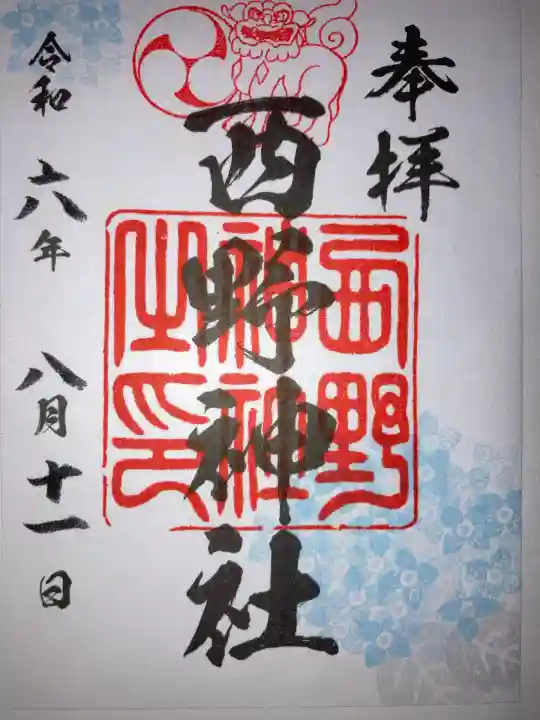 奉拝
西野神社
西野
神社
之印
令和六年八月十一日